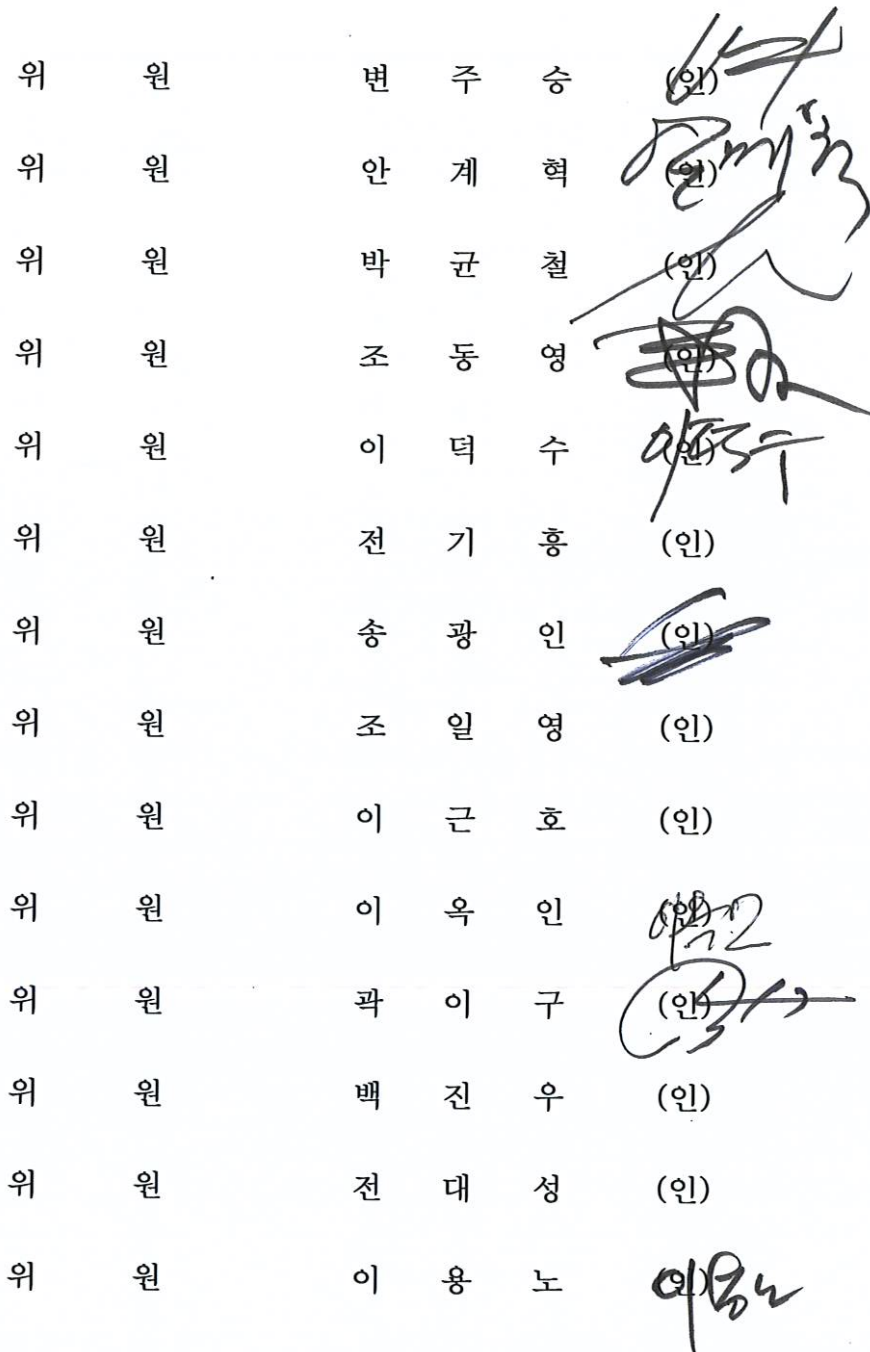 위 원 변 주 승 (인)
위 원 안 계 혁 (인)
위 원 박 균 철 (인)
위 원 조 동 영 (인)
위 원 이 덕 수 (인) 이덕수
위 원 전 기 흥 (인)
위 원 송 광 인 (인)
위 원 조 일 영 (인)
위 원 이 근 호 (인)
위 원 이 옥 인 (인)
위 원 곽 이 구 (인)
위 원 백 진 우 (인)
위 원 전 대 성 (인)
위 원 이 용 노 (인) 이용노